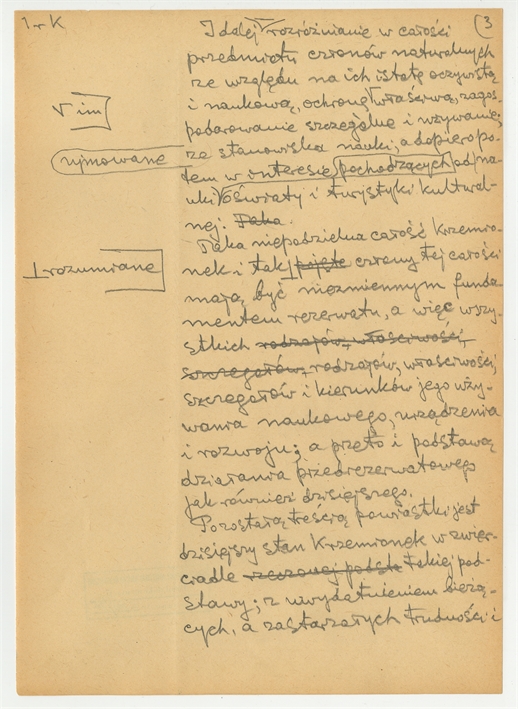 1rK
(3
I dalej V rozróżnianie w całości
przedmiotu członów naturalnych
ze względu na ich istotę oczywistą
i naukową, ochronę właściwą, zagos-
V im
podarowanie szczególne i używanie;
ze stanowiska nauki, a dopiero po-
ujmowane
tem w interesie pochodzących od na-
uki V oświaty i turystyki kultural-
nej. Taka
Taka niepodzielna całość Krzemio-
rozumiane
nek i tak pojęte człony tej całości
mają być niezmiennym funda
mentem rezerwatu, a więc wszy-
stkich rodzajów, właściwości,
szczegółów, rodzajów, właściwości,
szczegółów i kierunków jego uży-
wania naukowego, urządzenia
i rozwoju; a przeto i podstawą
działania przedrezerwatowego
jak również dzisiejszego.
Pozostałą treścią powiastki jest
dzisiejszy stan Krzemionek w zwier-
ciadle rzeczonej podsta takiej pod-
stawy; z uwydatnieniem bieżą-
cych, a zastarzałych trudności i